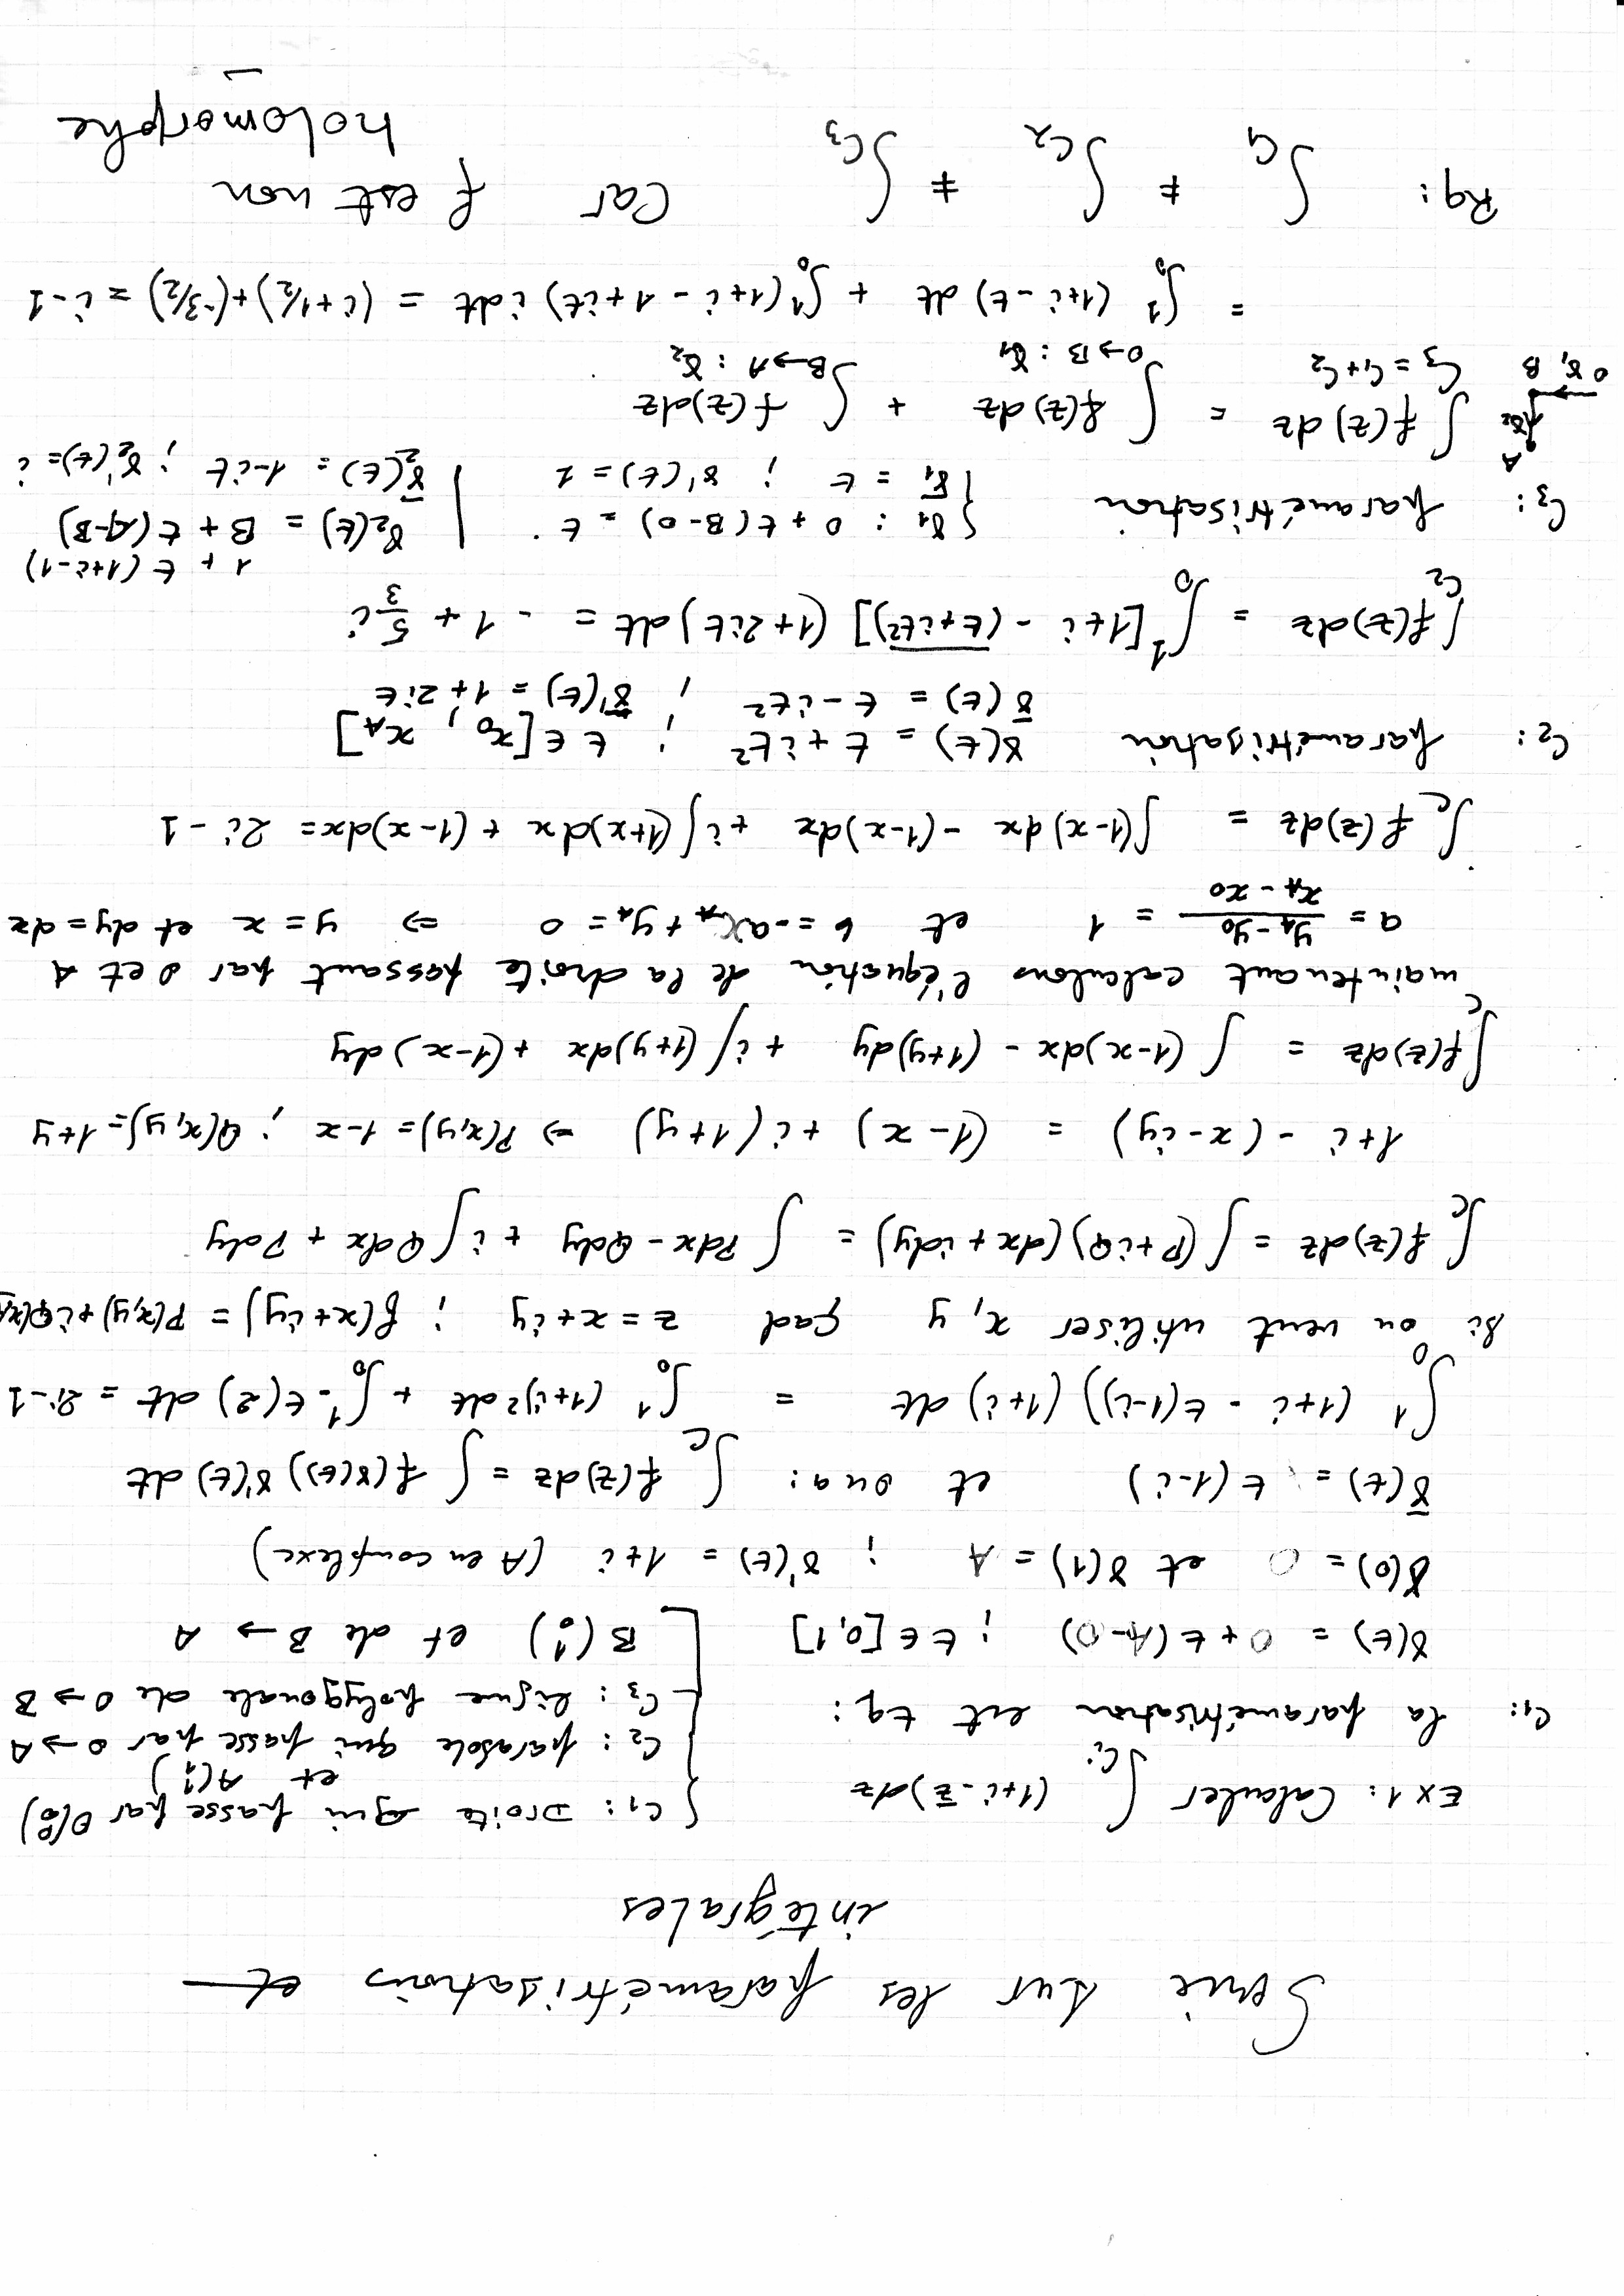 Série sur les paramétrisations et
intégrales
Ex 1: Calculer ∫_{C_i} (1+i-z̅)dz { C₁: Droite qui passe par O(0 0) et A(1 1)
C₂: parabole qui passe par O→A
C₃: ligne polygonale de O→B
B(1 0) et de B→A
C₁: la paramétrisation est tq:
γ(t) = O+t(A-O) ; t∈[0,1]
γ(0) = O et γ(1) = A ; γ'(t) = 1+i (A en complexe)
γ̅(t) = t(1-i) et on a: ∫_C f(z)dz = ∫ f(γ(t)) γ'(t) dt
∫₀¹ (1+i - t(1-i)) (1+i) dt = ∫₀¹ (1+i)² dt + ∫₀¹ -t(2) dt = 2i-1
Si on veut utiliser x, y çad z = x+iy ; f(x+iy) = P(x,y)+iQ(x,y
∫_C f(z)dz = ∫ (P+iQ)(dx+idy) = ∫ Pdx - Qdy + i∫ Qdx + Pdy
1+i - (x-iy) = (1-x) + i(1+y) ⇒ P(x,y) = 1-x ; Q(x,y) = 1+y
∫_C f(z)dz = ∫ (1-x)dx - (1+y)dy + i∫ (1+y)dx + (1-x)dy
maintenant calculons l'équation de la droite passant par O et A
a = (y_A-y_0)/(x_A-x_0) = 1 et b = -ax_A + y_A = 0 ⇒ y = x et dy = dx
∫_C f(z)dz = ∫(1-x)dx - (1-x)dx + i∫(1+x)dx + (1-x)dx = 2i-1
C₂: paramétrisation γ(t) = t + it² ; t∈[x₀, x_A]
γ̅(t) = t - it² ; γ'(t) = 1+2it
∫_{C₂} f(z)dz = ∫₀¹ [1+i - (t+it²)] (1+2it)dt = -1 + 5/3 i
1 + t(1+i-1)
C₃: paramétrisation { γ₁ : O + t(B-O) = t. | γ₂(t) = B + t(A-B)
γ̅₁ = t ; γ'(t) = 1 | γ̅₂(t) = 1-it ; γ₂'(t) = i
A γ₂ O γ₁ B ∫_{C₃=C₁+C₂} f(z)dz = ∫_{O→B : γ₁} f(z)dz + ∫_{B→A : γ₂} f(z)dz
= ∫₀¹ (1+i-t) dt + ∫₀¹ (1+i-1+it) i dt = (i+1/2)+(-3/2) = i-1
Rq: ∫_{C₁} ≠ ∫_{C₂} ≠ ∫_{C₃} Car f est non
holomorphe